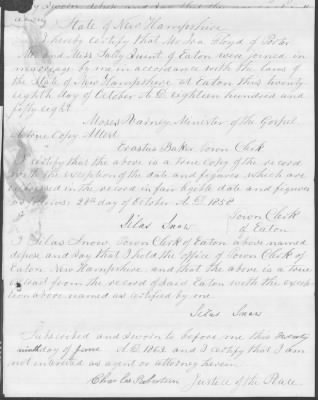 State of New Hampshire
I hereby certify that Mr Ira Floyd of Porter
Me and Miss Sally Bunt of Eaton were joined in
marriage by me in accordance with the laws of
the State of New Hampshire at Eaton this twenty
eighth day of October A.D. eighteen hundred and
fifty eight
Moses Varney Minister of the Gospel
A true Copy Attest
Erastus Baker Town Clerk
I certify that the above is a true copy of the record
with the exception of the date and figures, which are
in the record in fair legible date and figures
as follows: 28th day of October A.D. 1858
Silas Snow Town Clerk
of Eaton
I Silas Snow, Town Clerk of Eaton above named
depose and say that I hold the office of Town Clerk of
Eaton New Hampshire, and that the above is a true
extract from the record of said Eaton with the excep-
tion above named as certified by me
Silas Snow
Subscribed and sworn to before me this twenty
ninth day of June A.D. 1863 and I certify that I am
not interested as agent or attorney herein
Charles Robertson Justice of the Peace